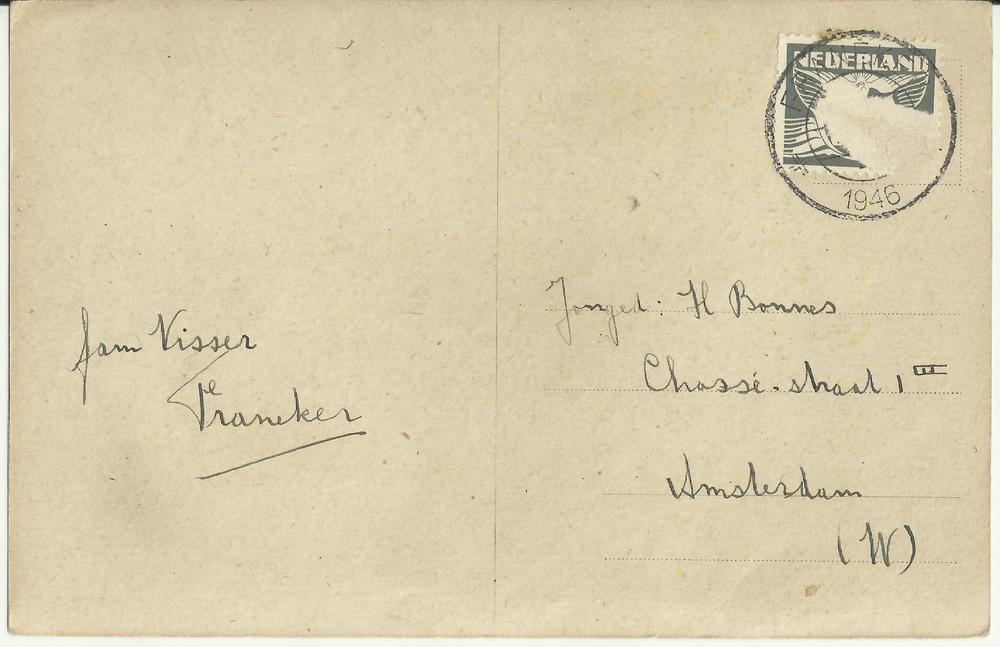 NEDERLAND
1946
fam Visser
Franeker
Jonged: H Bonnes
Chassé-straat 1 III
Amsterdam
(W)